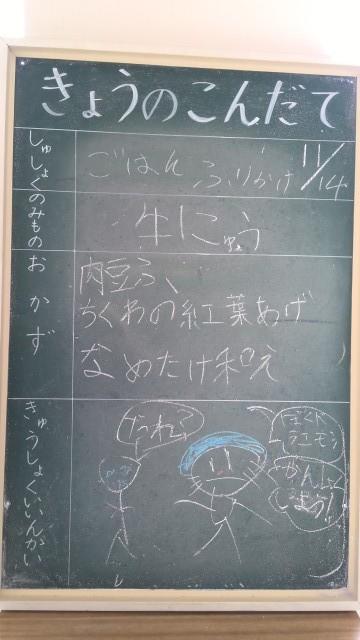 きょうのこんだて
しゅしょく
ごはん ふりかけ 11/14
のみもの
牛にゅう
おかず
肉豆ふ、
ちくわの紅葉あげ
なめたけ和え
きゅうしょくいいんかい
だれ?
ぼくド
ラエモン